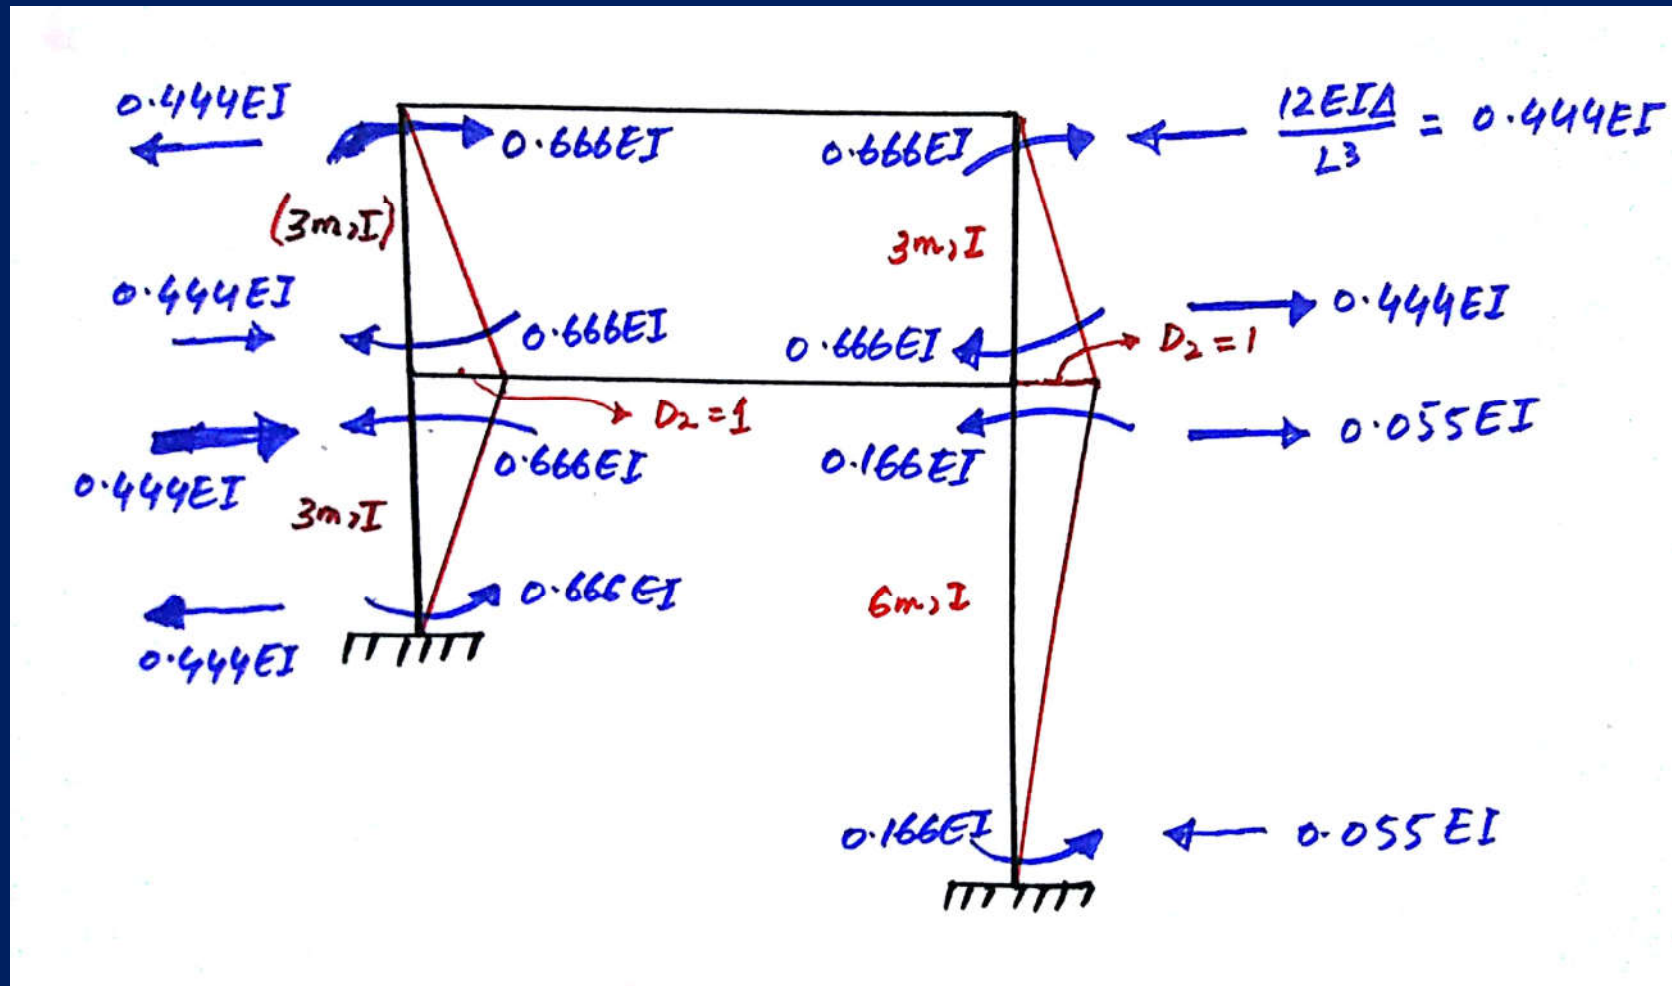 0.444EI
0.666EI
0.666EI
12EIΔ / L3 = 0.444EI
(3m,I)
3m,I
0.444EI
0.666EI
0.666EI
0.444EI
D2=1
D2=1
0.444EI
0.666EI
0.166EI
0.055EI
3m,I
0.444EI
0.666EI
6m,I
0.166EI
0.055EI